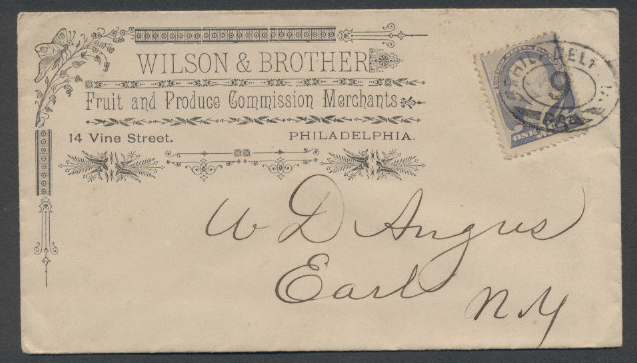 WILSON & BROTHER
Fruit and Produce Commission Merchants
14 Vine Street. PHILADELPHIA.
W D Angus
Earl N.Y
9